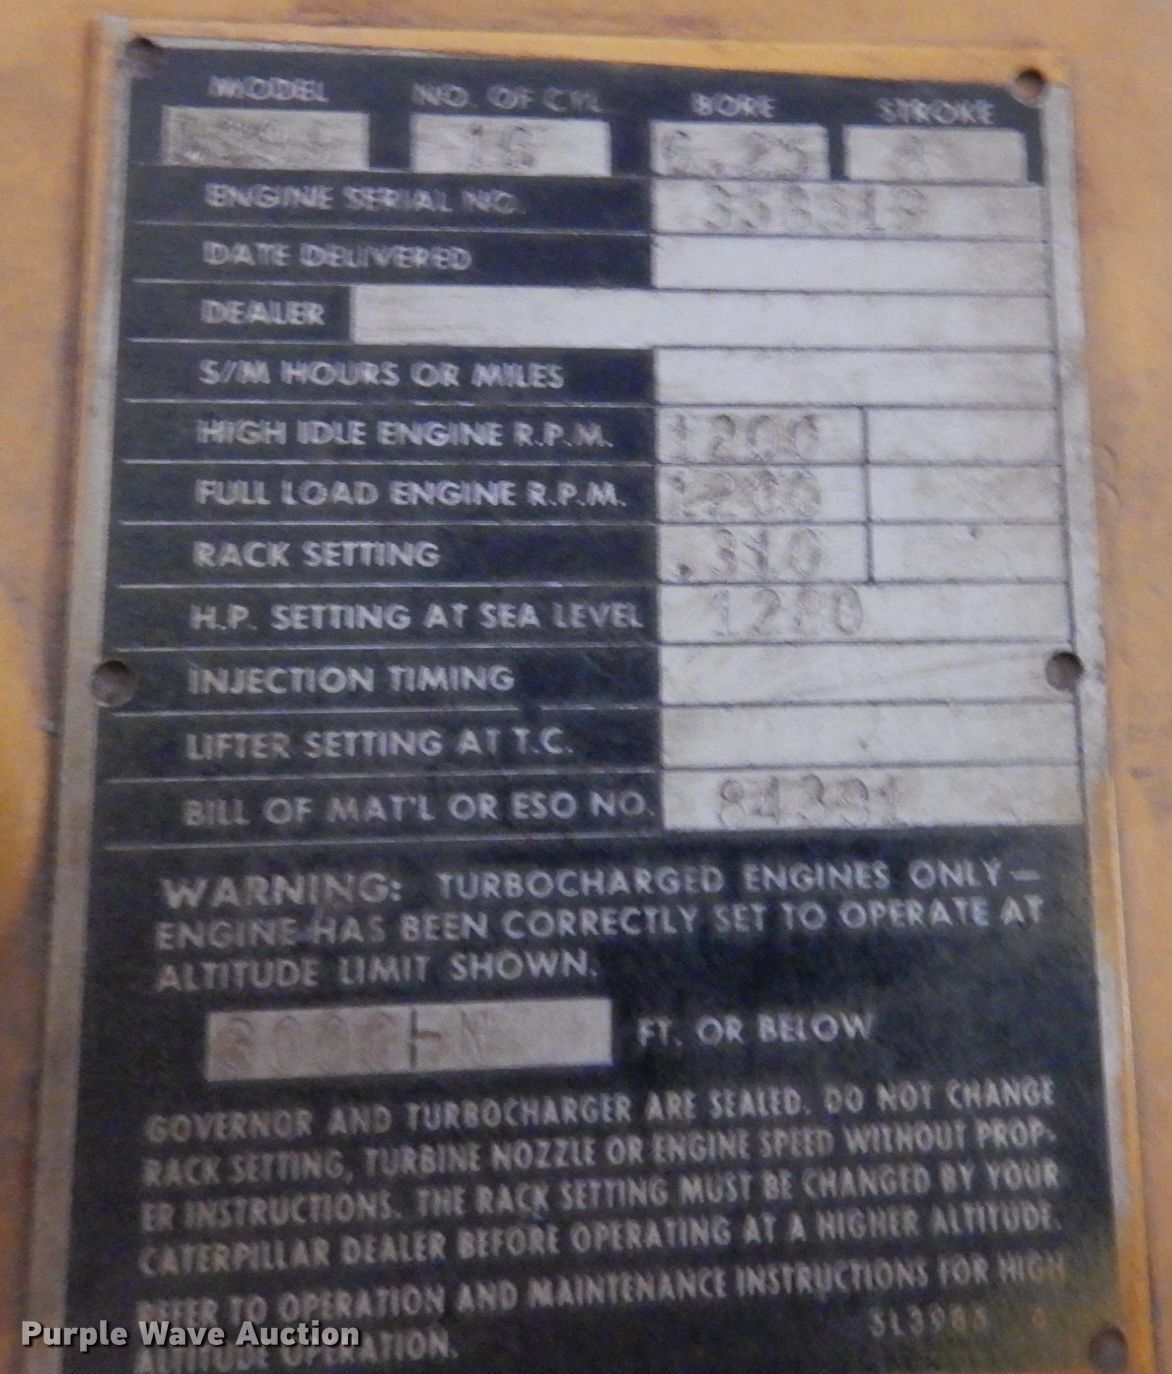 MODEL NO. OF CYL. BORE STROKE
16 6.25 8
ENGINE SERIAL NO.
DATE DELIVERED
DEALER
S/M HOURS OR MILES
HIGH IDLE ENGINE R.P.M. 1200
FULL LOAD ENGINE R.P.M. 1200
RACK SETTING .310
H.P. SETTING AT SEA LEVEL
INJECTION TIMING
LIFTER SETTING AT T.C.
BILL OF MAT'L OR ESO NO. 84391
WARNING: TURBOCHARGED ENGINES ONLY—
ENGINE HAS BEEN CORRECTLY SET TO OPERATE AT
ALTITUDE LIMIT SHOWN.
FT. OR BELOW
GOVERNOR AND TURBOCHARGER ARE SEALED. DO NOT CHANGE
RACK SETTING, TURBINE NOZZLE OR ENGINE SPEED WITHOUT PROP-
ER INSTRUCTIONS. THE RACK SETTING MUST BE CHANGED BY YOUR
CATERPILLAR DEALER BEFORE OPERATING AT A HIGHER ALTITUDE.
REFER TO OPERATION AND MAINTENANCE INSTRUCTIONS FOR HIGH
ALTITUDE OPERATION.
Purple Wave Auction